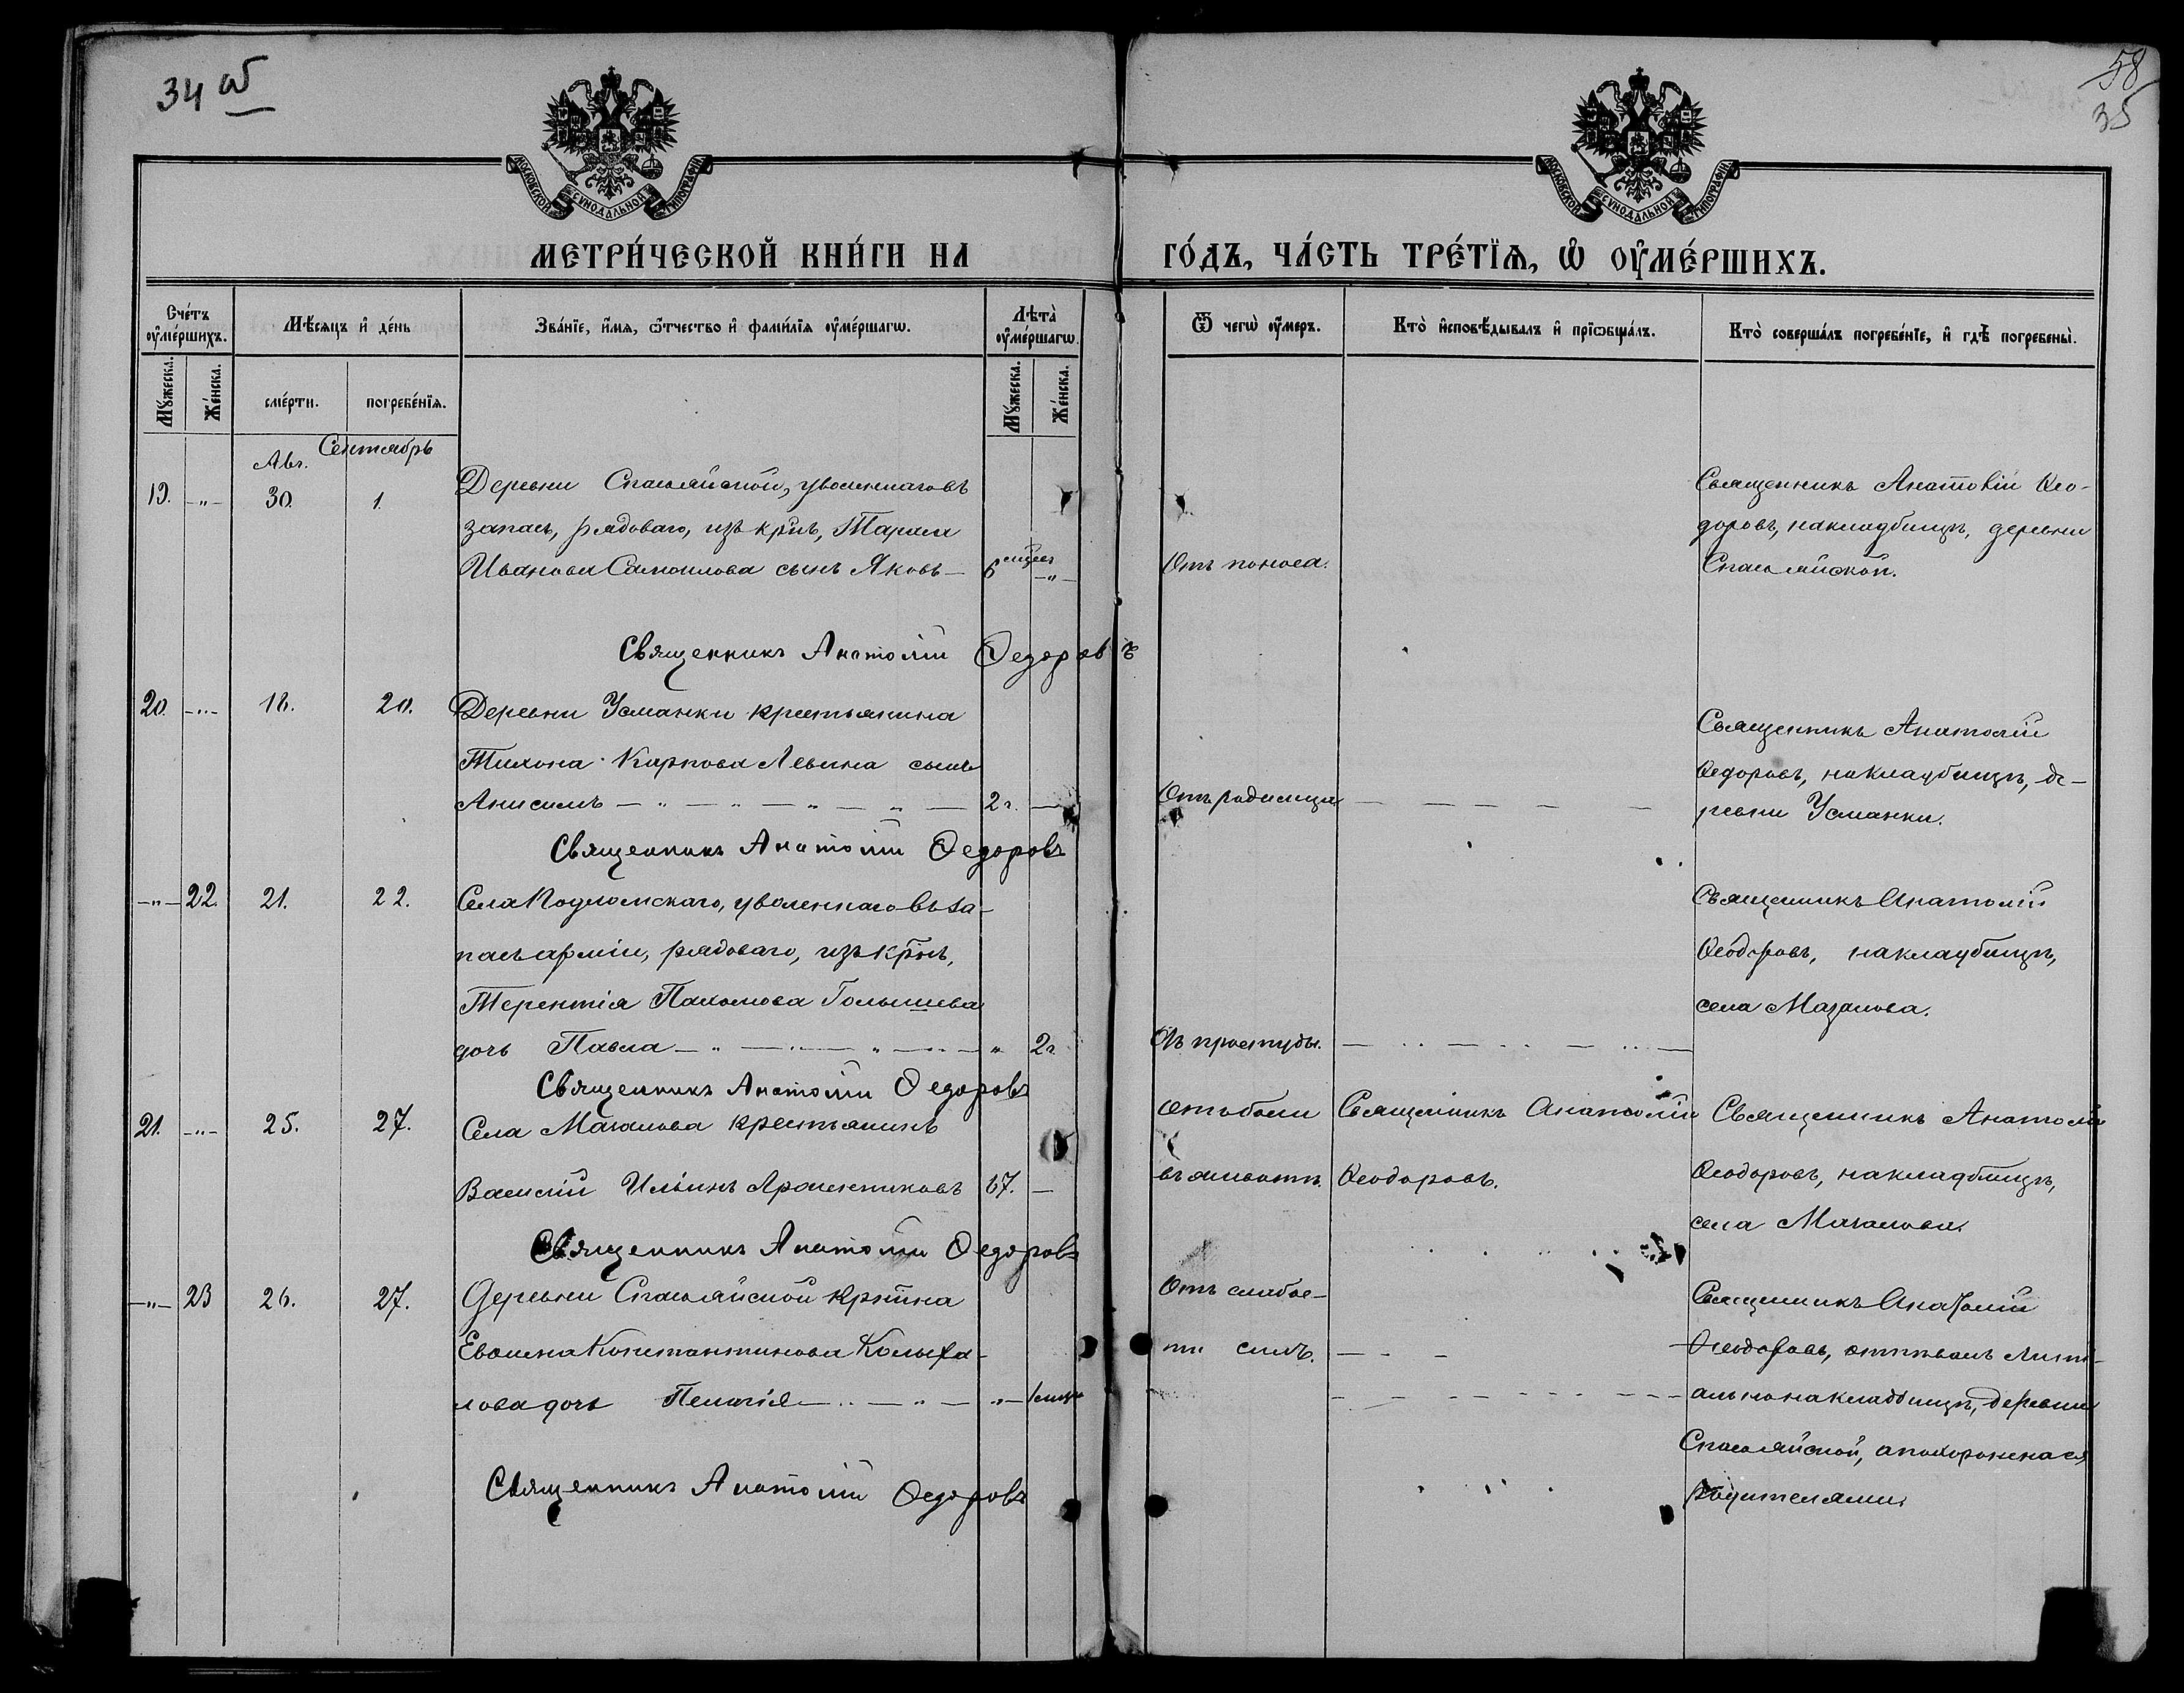 34 об
58
35
МОСКОВСКОЙ СѴНОДАЛЬНОЙ ТИПОГРАФІИ
МОСКОВСКОЙ СѴНОДАЛЬНОЙ ТИПОГРАФІИ
МЕТРИ́ЧЕСКОЙ КНИ́ГИ НА ГО́ДЪ, ЧА́СТЬ ТРЕ́ТЇѦ, Ѽ ОУ҆МЕ́РШИХЪ.
Сче́тъ оу҆ме́ршихъ.
Мѣ́сяцъ и҆ де́нь
Зва́нїе, и҆́мѧ, ѻ҆́тчество и҆ фами́лїѧ оу҆ме́ршагѡ.
Лѣта̀ оу҆ме́ршагѡ.
Ѿ чегѡ̀ оу҆́меръ.
Кто̀ и҆сповѣ́дывалъ и҆ прїѡбща́лъ.
Кто̀ соверша́лъ погребе́нїе, и҆ гдѣ̀ погребены̀.
Мꙋ́жеска. Же́нска. сме́рти. погребе́нїѧ. Мꙋ́жеска. Же́нска.
Авг. Сентябрь
19. -"- 30. 1. Деревни Спасояйской, уволеннаго въ
запасъ, рядоваго, изъ крнъ, Тараса
Иванова Самоилова сынъ Яковъ — 6 мцевъ -"- Отъ поноса.
Священникъ Анатолій Ѳео-
доровъ, на кладбищѣ, деревни
Спасояйской.
Священникъ Анатолій Ѳедоровъ
20. -"- 18. 20. Деревни Усманки крестьянина
Тихона Карпова Левина сынъ
Анисимъ — " — " — " — " — 2 г. — Отъ родимца — — — — —
Священникъ Анатолій
Ѳедоровъ, на кладбищѣ, де-
ревни Усманки.
Священникъ Анатолій Ѳедоровъ
-"- 22. 21. 22. Села Подломскаго, уволеннаго въ за-
пасъ арміи, рядоваго, изъ крнъ,
Терентія Пахомова Голышева
дочь Павла — " — " — " — " — " 2 г. Отъ простуды. — " — " — " —
Священникъ Анатолій
Ѳеодоровъ, на кладбищѣ,
села Мазалова.
Священникъ Анатолій Ѳедоровъ
21. -"- 25. 27. Села Мазалова крестьянинъ
Василій Ильинъ 67. —
отъ боли
въ животѣ.
Священникъ Анатолій
Ѳеодоровъ.
Священникъ Анатолій
Ѳеодоровъ, на кладбищѣ,
села Мазалова.
Священникъ Анатолій Ѳедоровъ
-"- 23 26. 27. Деревни Спасояйской крнина
Константинова
лова дочь Пелагія — " — " — "
Отъ слабос-
ти силъ. — - -
Священникъ Анатолій
Ѳеодоровъ, отпѣвалъ
на кладбищѣ, деревни
Спасояйской, а похоронена
родителями.
Священникъ Анатолій Ѳедоровъ